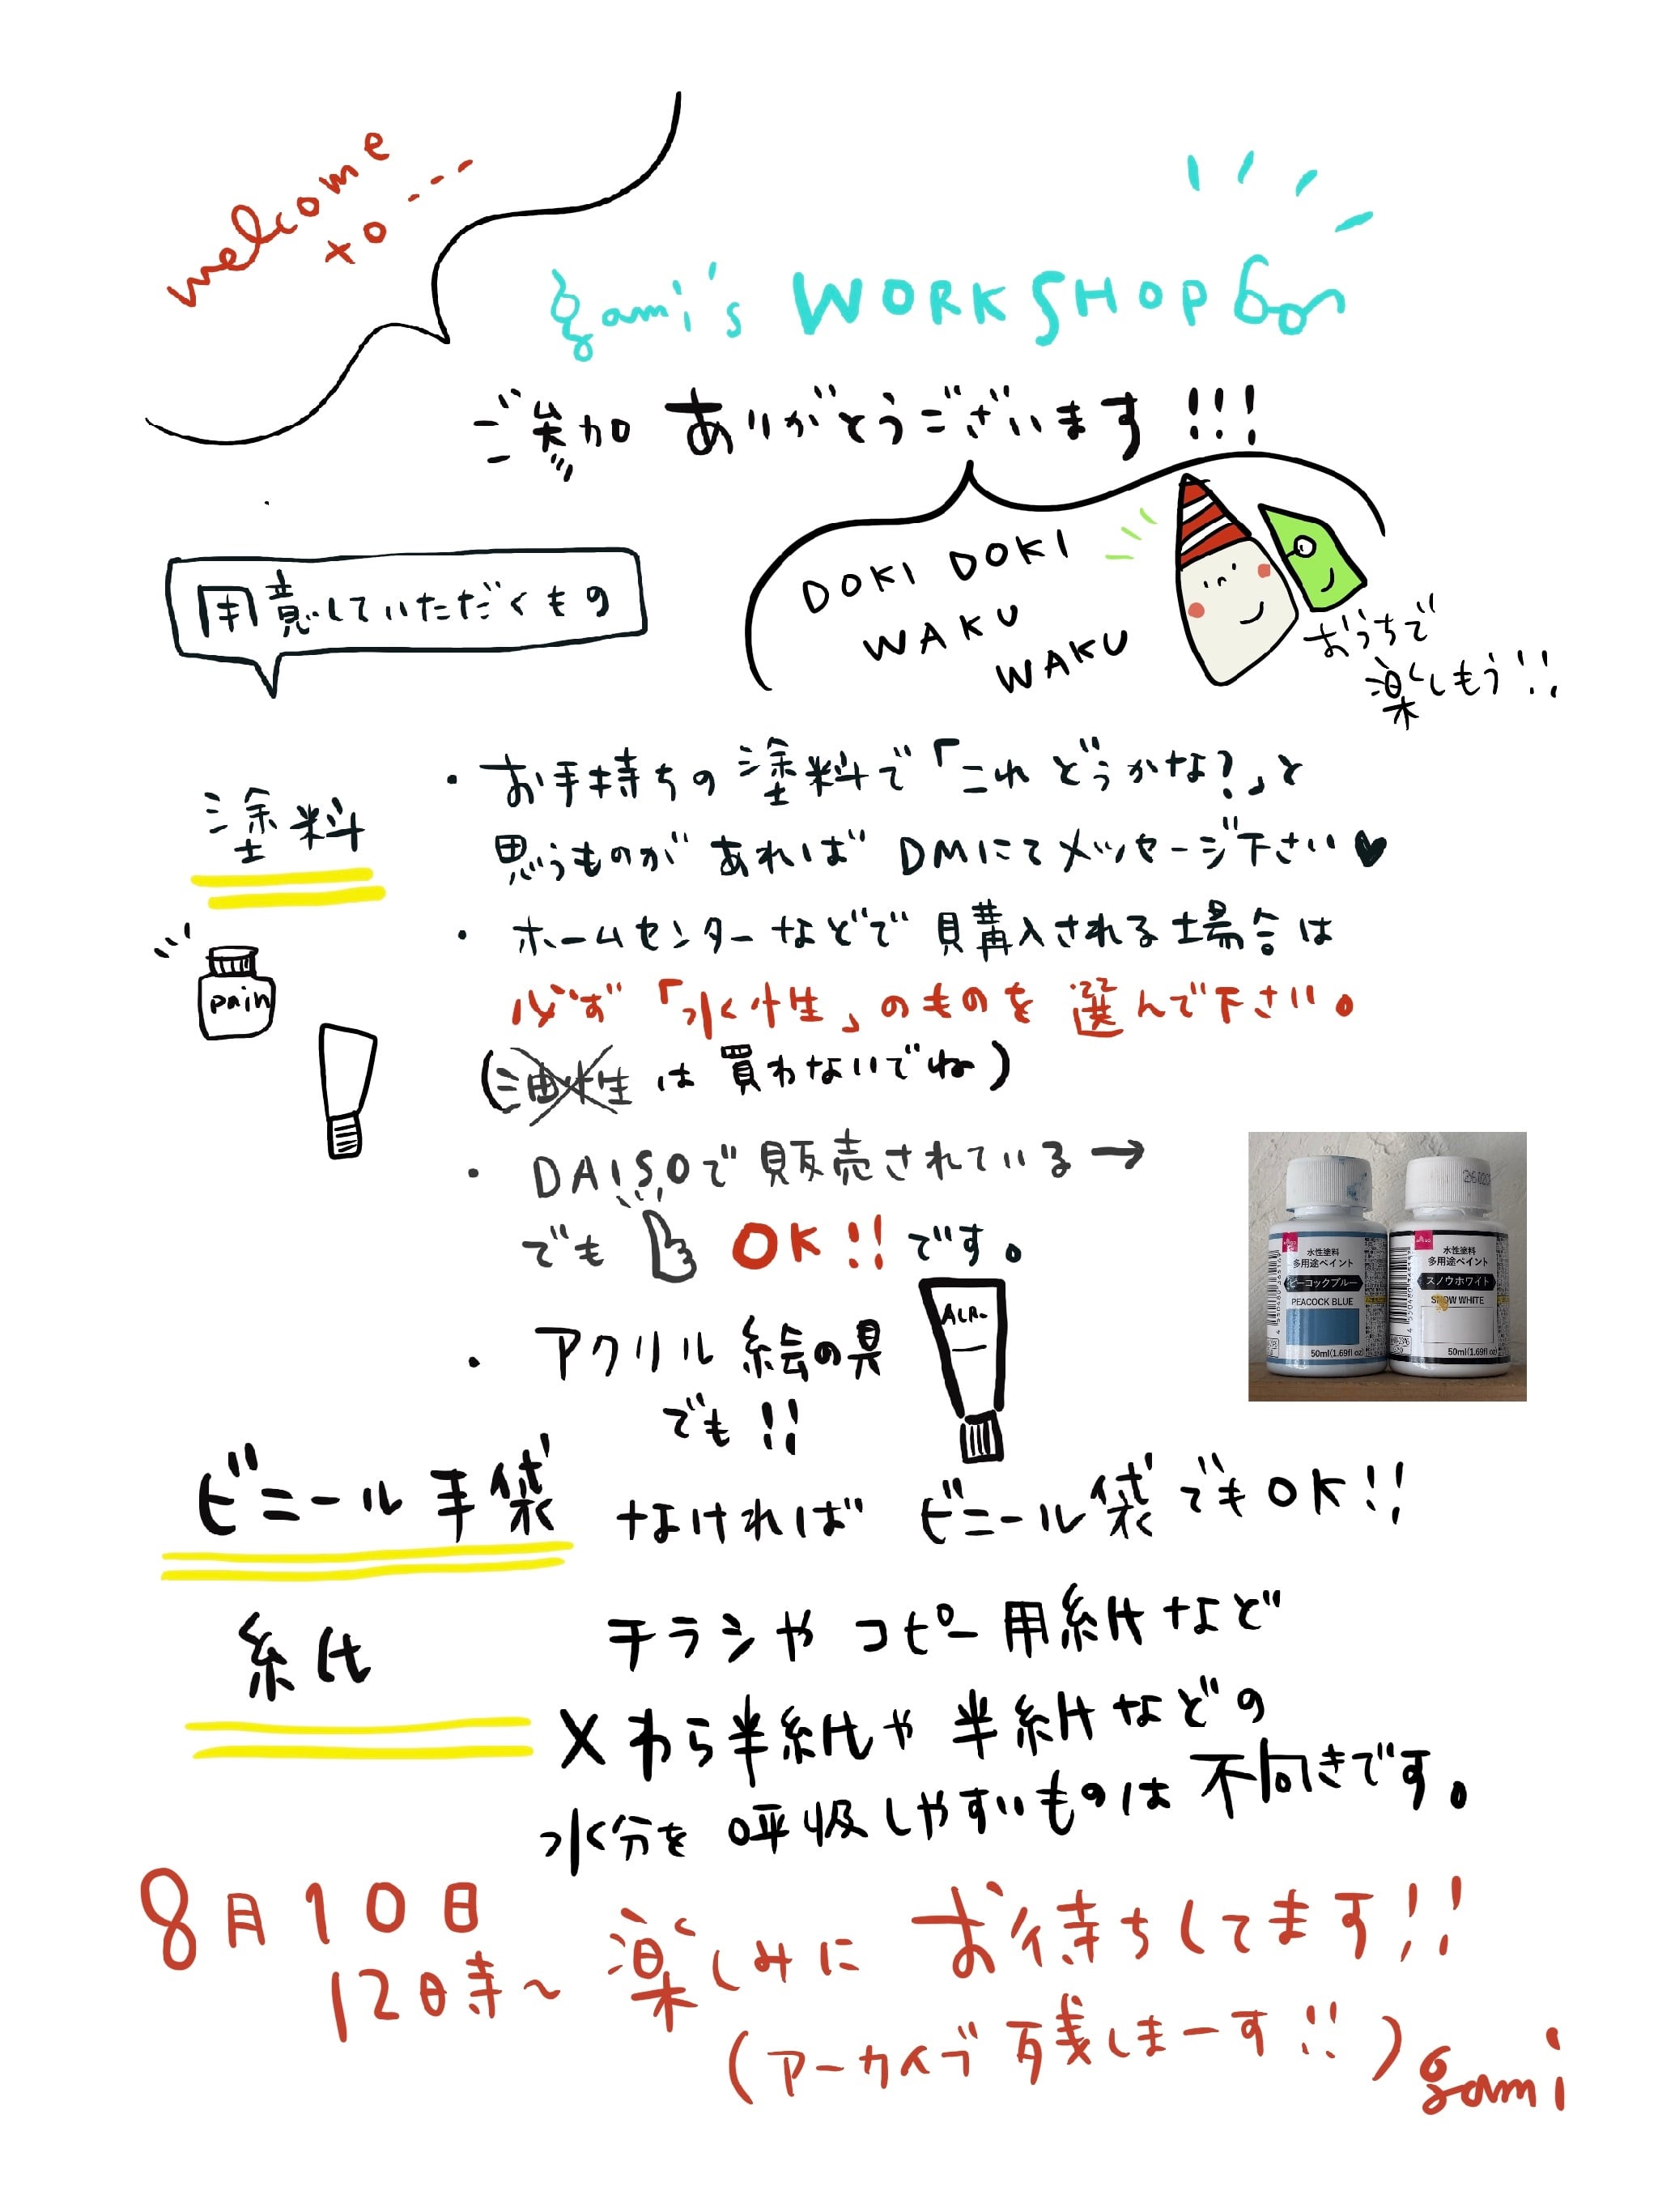 welcome
xo....
gami's WORKSHOP
ご参加 ありがとうございます!!!
DOKI DOKI
WAKU
WAKU
おうちで
楽しもう!!
用意していただくもの
塗料
・お手持ちの塗料で「これ どうかな?」と
思うものが あれば DMにて メッセージ下さい♥
・ホームセンターなどで 購入される場合は
必ず「水性」のものを 選んで下さい。
(油性は 買わないでね)
pain
・DAISOで販売されている→
でも OK!! です。
水性塗料
多用途ペイント
ピーコックブルー
PEACOCK BLUE
50ml(1.69fl oz)
水性塗料
多用途ペイント
スノウホワイト
SNOW WHITE
50ml(1.69fl oz)
・アクリル絵の具
でも!!
ビニール手袋 なければ ビニール袋でもOK!!
紙 チラシや コピー用紙など
×わら半紙や 半紙などの
水分を 呼吸しやすいものは 不向きです。
8月10日
12時~ 楽しみに お待ちしてます!!
(アーカイブ残しまーす!!) gami